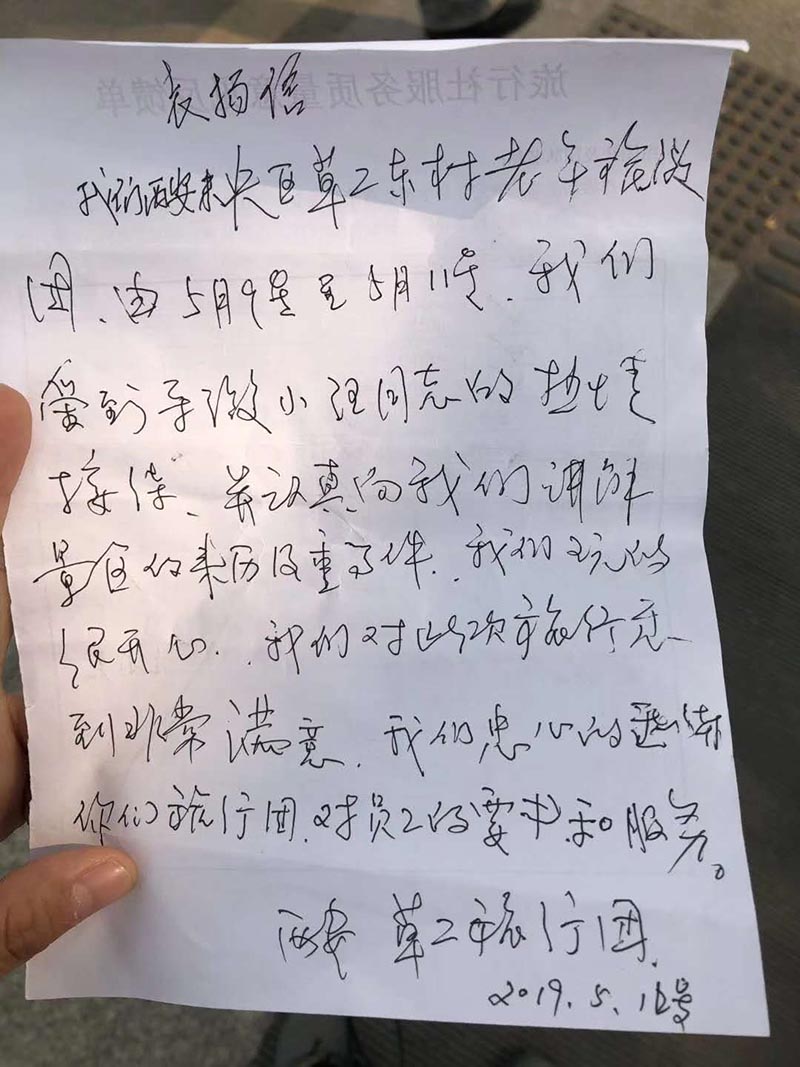 旅行社服务质量 反馈单
表扬信
我们西安未央区草二东村老年旅游
团、由5月9号至5月11号、我们
受到导游小汪同志的热情
接待、并认真向我们讲解
景区的来历及重条件、我们玩的
很开心、我们对此次旅行感
到非常满意、我们忠心的感谢
你们旅行团、对员工的要求和服务。
西安 草二旅行团、
2019.5.12号